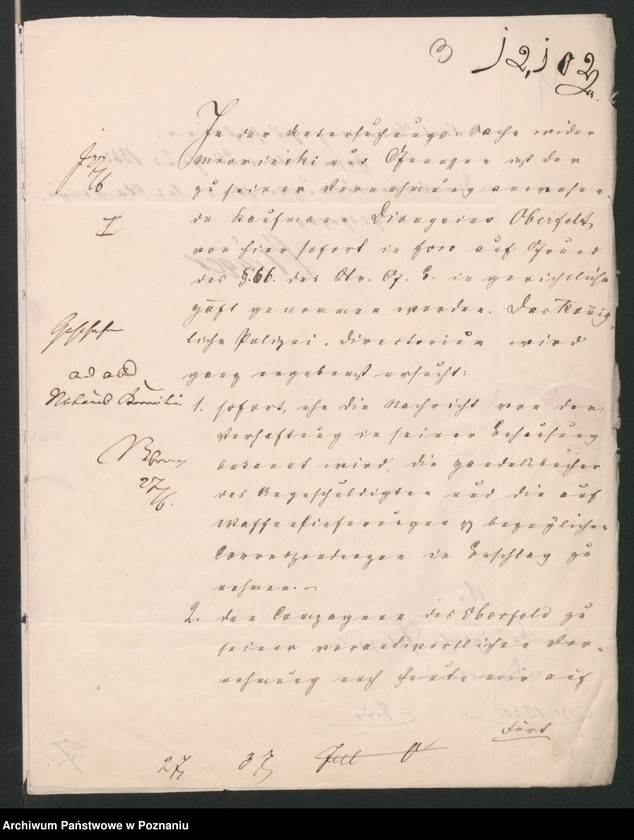 3
12,102
In der Untersuchungs-Sache wider
und Genossen ist der
zu seiner Vernehmung anwesen-
de Kaufmann Dionysius Oberfelt,
von hier sofort in foro auf Grund
des §.66. des Str. G. B. in gerichtliche
Haft genommen worden. Das König-
liche Polizei-Directorium wird
ganz ergebenst ersucht:
1. sofort, ehe die Nachricht von der
Verhaftung in seiner Behausung
bekannt wird, die Handelsbücher
des Angeschuldigten und die auf
Waffenlieferungen bezüglichen
Correspondenzen in Beschlag zu
nehmen.-
2. den Compagnon des Oberfeld zu
seiner verantwortlichen Ver-
nehmung noch heute mir auf
27/6
I
ad acta
27/6.
Archiwum Państwowe w Poznaniu